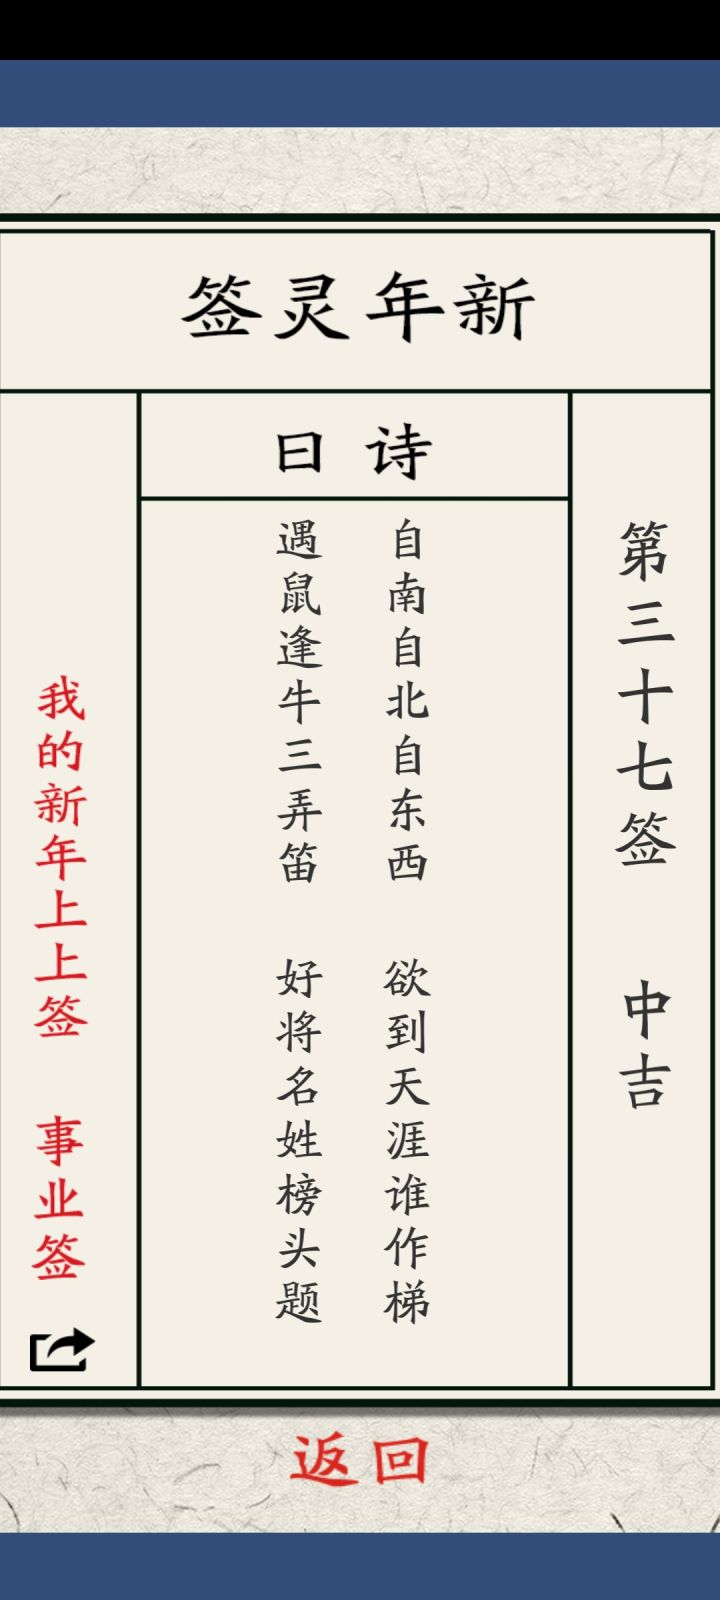 新年灵签
第三十七签 中吉
诗曰
自南自北自东西 欲到天涯谁作梯
遇鼠逢牛三弄笛 好将名姓榜头题
我的新年上上签 事业签
返回